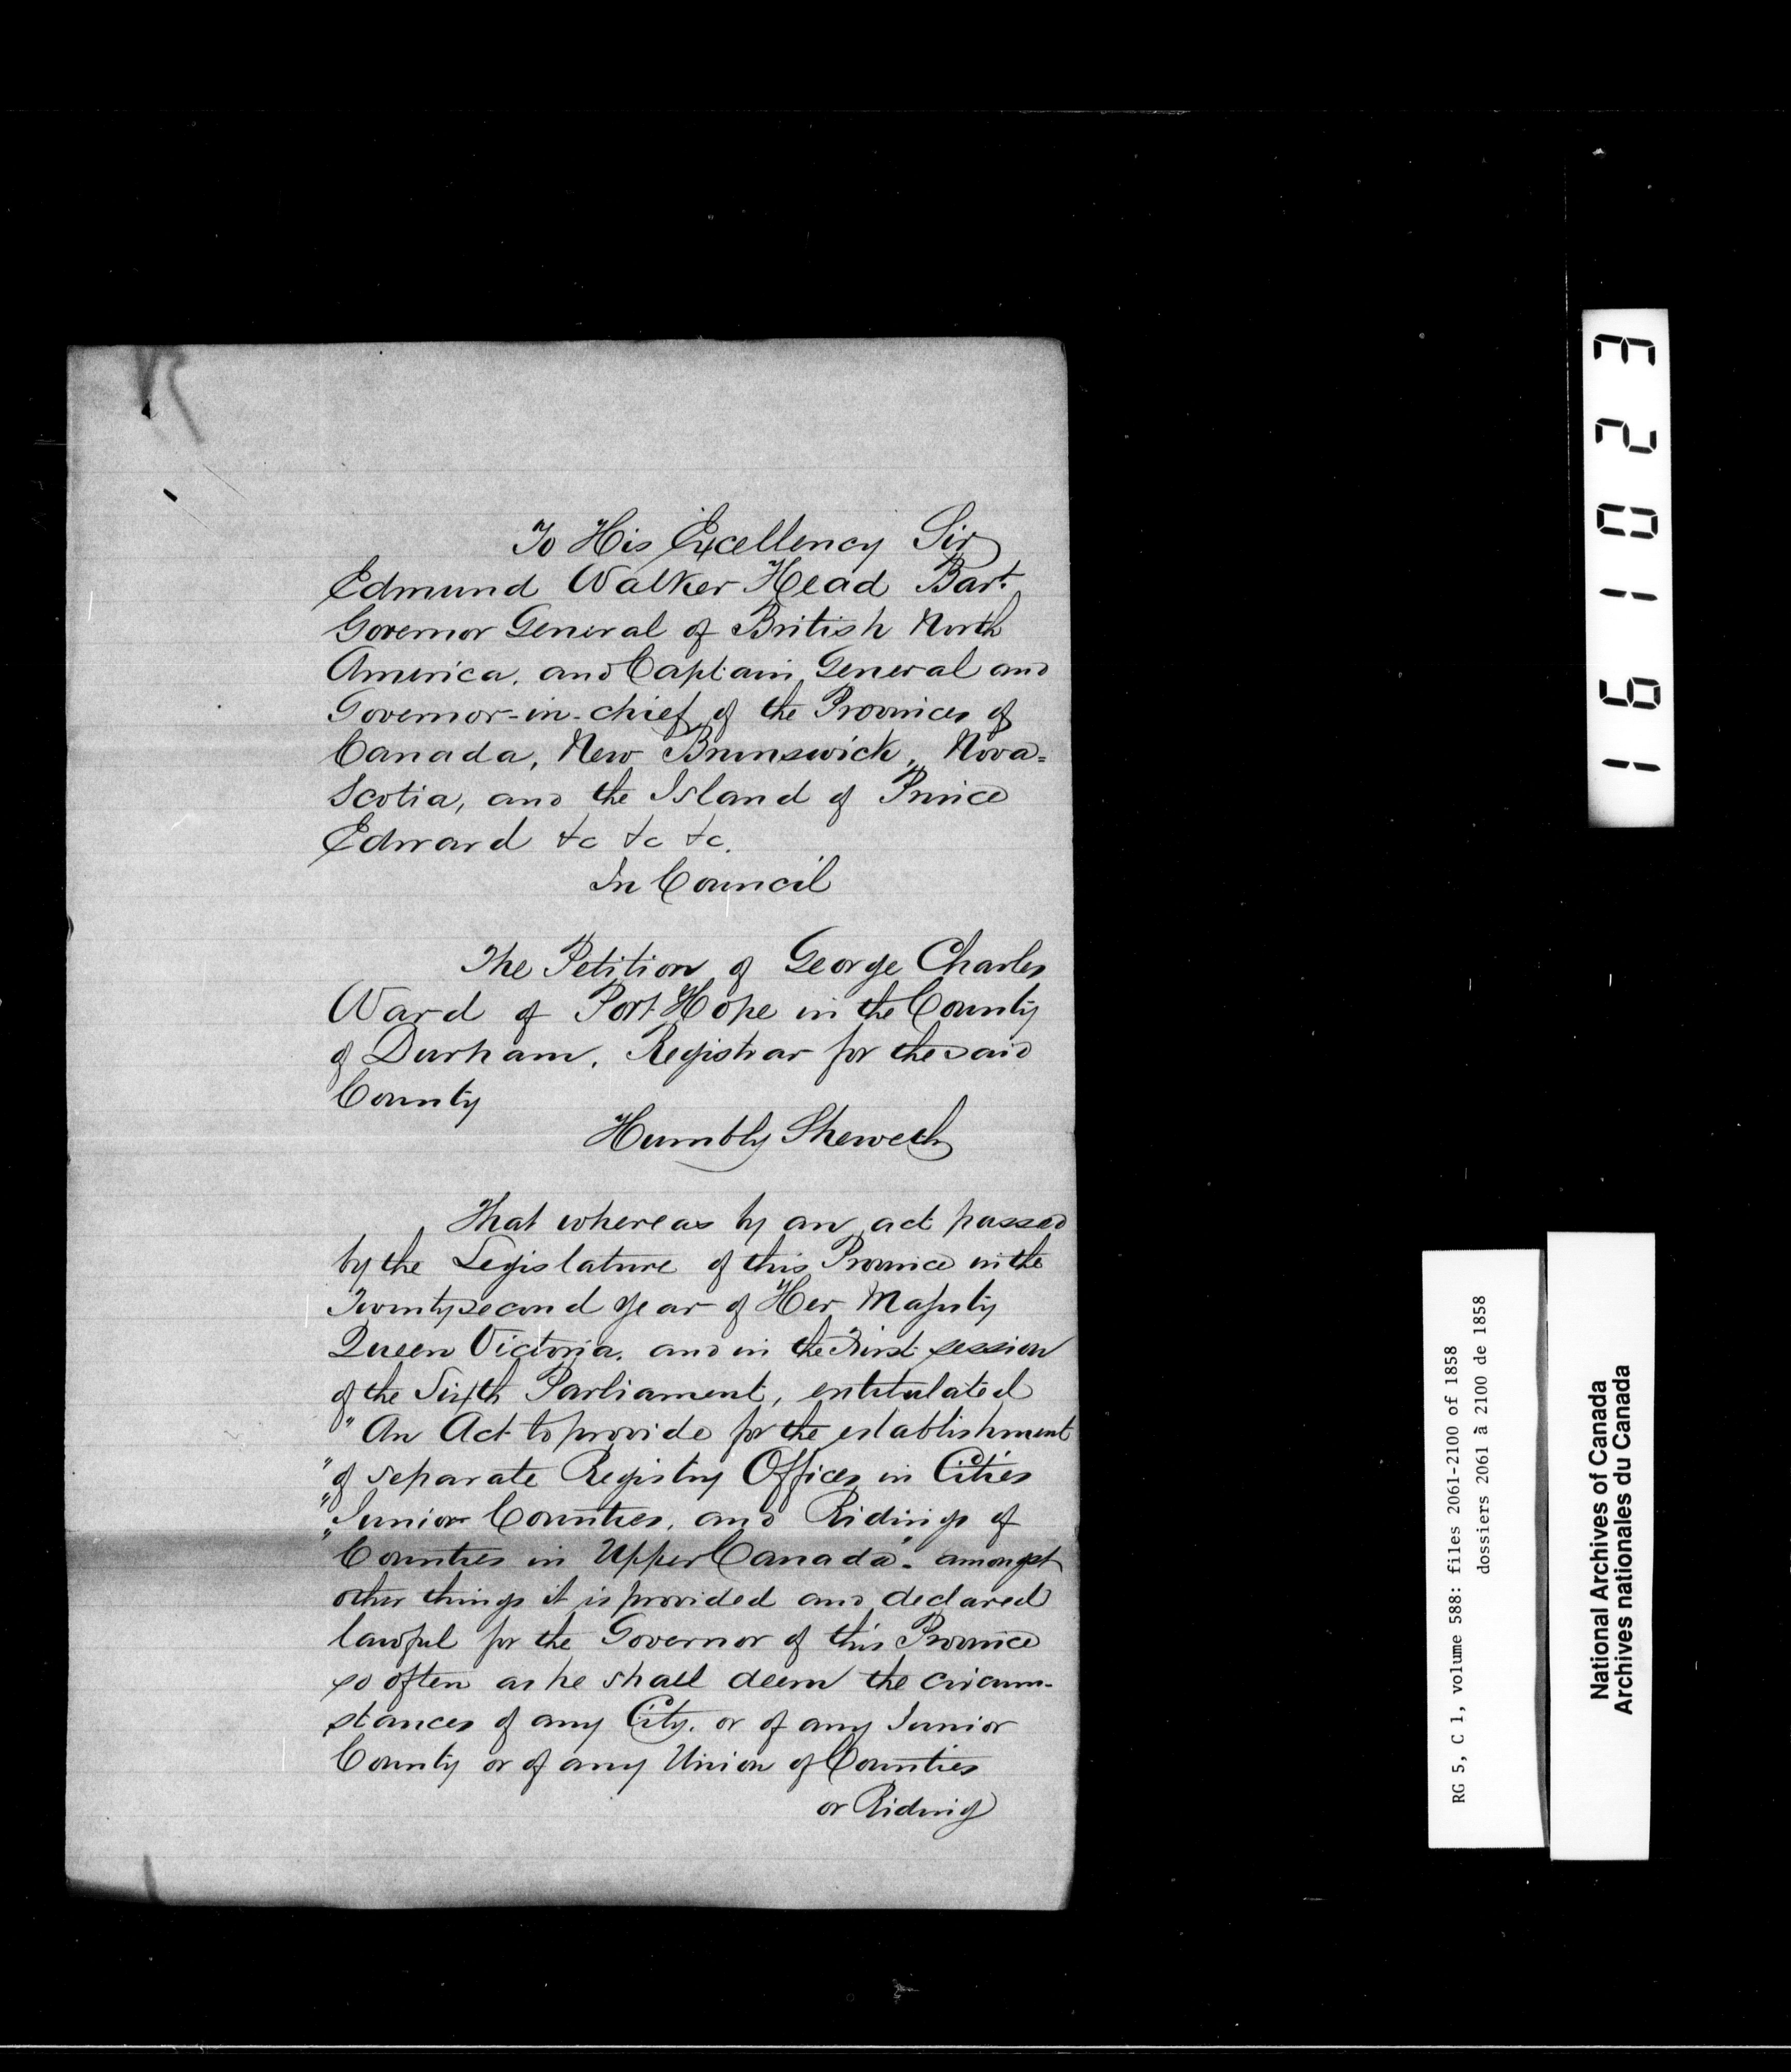 To His Excellency Sir
Edmund Walker Head Bart.
Governor General of British North
America, and Captain General and
Governor-in-chief of the Provinces of
Canada, New Brunswick, Nova=
Scotia, and the Island of Prince
Edward &c &c &c.
In Council
The Petition of George Charles
Ward of Port Hope in the County
of Durham, Registrar for the said
County
Humbly Sheweth
That whereas by an act passed
by the Legislature of this Province in the
Twenty second year of Her Majesty
Queen Victoria, and in the First session
of the Sixth Parliament, entitulated
" An Act to provide for the establishment
" of separate Registry Offices in Cities
" Junior Counties, and Ridings of
" Counties in Upper Canada". amongst
other things it is provided and declared
lawful for the Governor of this Province
so often as he shall deem the circum-
stances of any City, or of any Junior
County or of any Union of Counties
or Riding
161023
RG 5, C 1, volume 588: files 2061-2100 of 1858
dossiers 2061 à 2100 de 1858
National Archives of Canada
Archives nationales du Canada